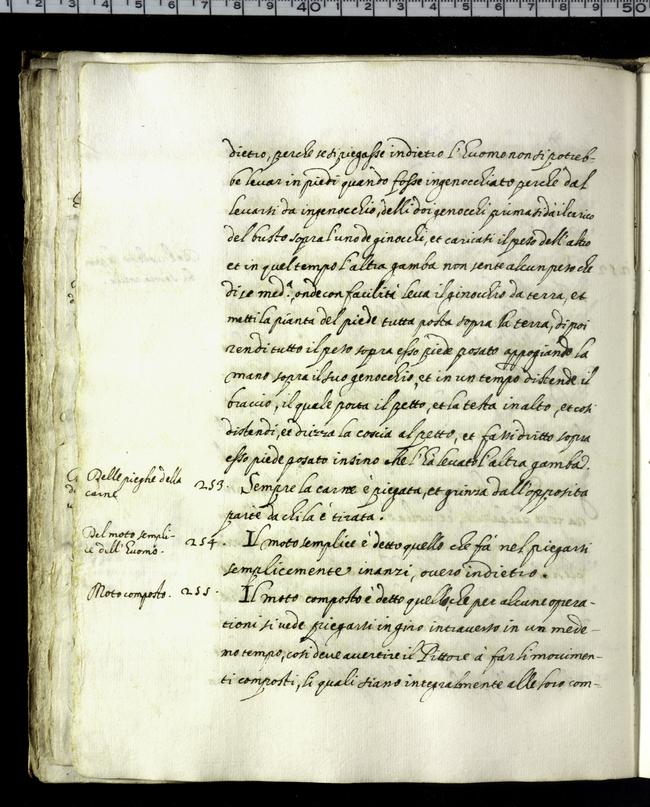 dietro, perche se si piegasse indietro l'huomo non si potreb-
be levar in piedi quando fosse ingenocchiato perche dal
levarsi da ingenocchio, delli doi genocchi prima si dà il carico
del busto sopra l'uno de ginocchi, et caricasi il peso dell'altro
et in quel tempo l'altra gamba non sente alcun peso che
di se med.ª onde con facilità leva il ginocchio da terra, et
metti la pianta del piede tutta posta sopra la terra, di poi
rendi tutto il peso sopra esso piede posato appogiando la
mano sopra il suo genocchio, et in un tempo distende il
braccio, il quale porta il petto, et la testa in alto, et cosi
distendi, et drizza la coscia al petto, et fassi dritto sopra
esso piede posato insino che l'ha levato l'altra gamba.
Delle pieghe della
carne
253. Sempre la carne è piegata, et grinza dall'opposita
parte da chi la è tirata.
Del moto sempli-
ce dell'huomo.
254. Il moto semplice è detto quello che fà nel piegarsi
semplicemente inanzi, overo indietro.
Moto composto. 255. Il moto composto è detto quello che per alcune opera-
tioni si vede piegarsi in giro intraverso in un mede-
mo tempo, cosi deve avertire il Pittore à far li movimen-
ti composti, li quali siano integralmente alle loro com-